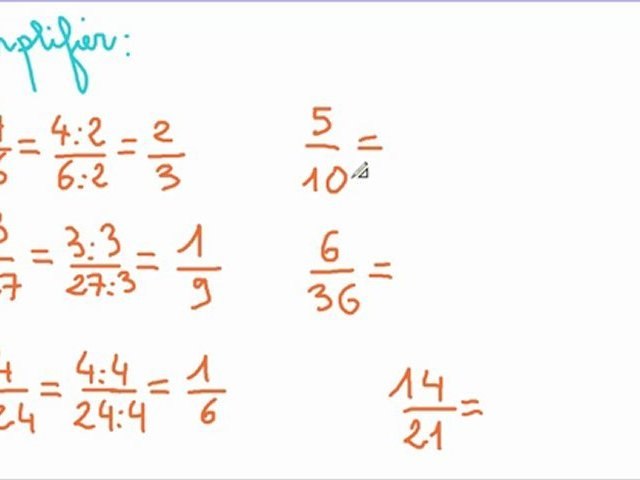 mplifier:
4/6 = 4:2/6:2 = 2/3
5/10 =
3/27 = 3:3/27:3 = 1/9
6/36 =
4/24 = 4:4/24:4 = 1/6
14/21 =